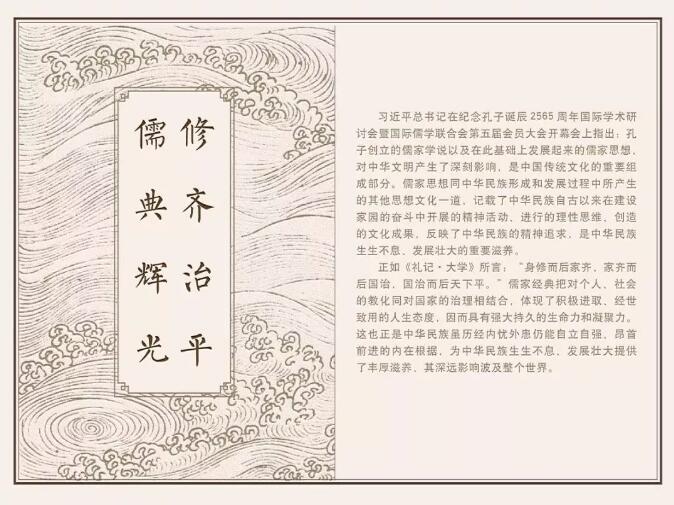 修齐治平
儒典辉光
习近平总书记在纪念孔子诞辰 2565 周年国际学术研
讨会暨国际儒学联合会第五届会员大会开幕会上指出：孔
子创立的儒家学说以及在此基础上发展起来的儒家思想，
对中华文明产生了深刻影响，是中国传统文化的重要组
成部分。儒家思想同中华民族形成和发展过程中所产生
的其他思想文化一道，记载了中华民族自古以来在建设
家园的奋斗中开展的精神活动、进行的理性思维、创造
的文化成果，反映了中华民族的精神追求，是中华民族
生生不息、发展壮大的重要滋养。
正如《礼记·大学》所言：“身修而后家齐，家齐而
后国治，国治而后天下平。”儒家经典把对个人、社会
的教化同对国家的治理相结合，体现了积极进取、经世
致用的人生态度，因而具有强大持久的生命力和凝聚力。
这也正是中华民族虽历经内忧外患仍能自立自强、昂首
前进的内在根据，为中华民族生生不息、发展壮大提供
了丰厚滋养，其深远影响波及整个世界。